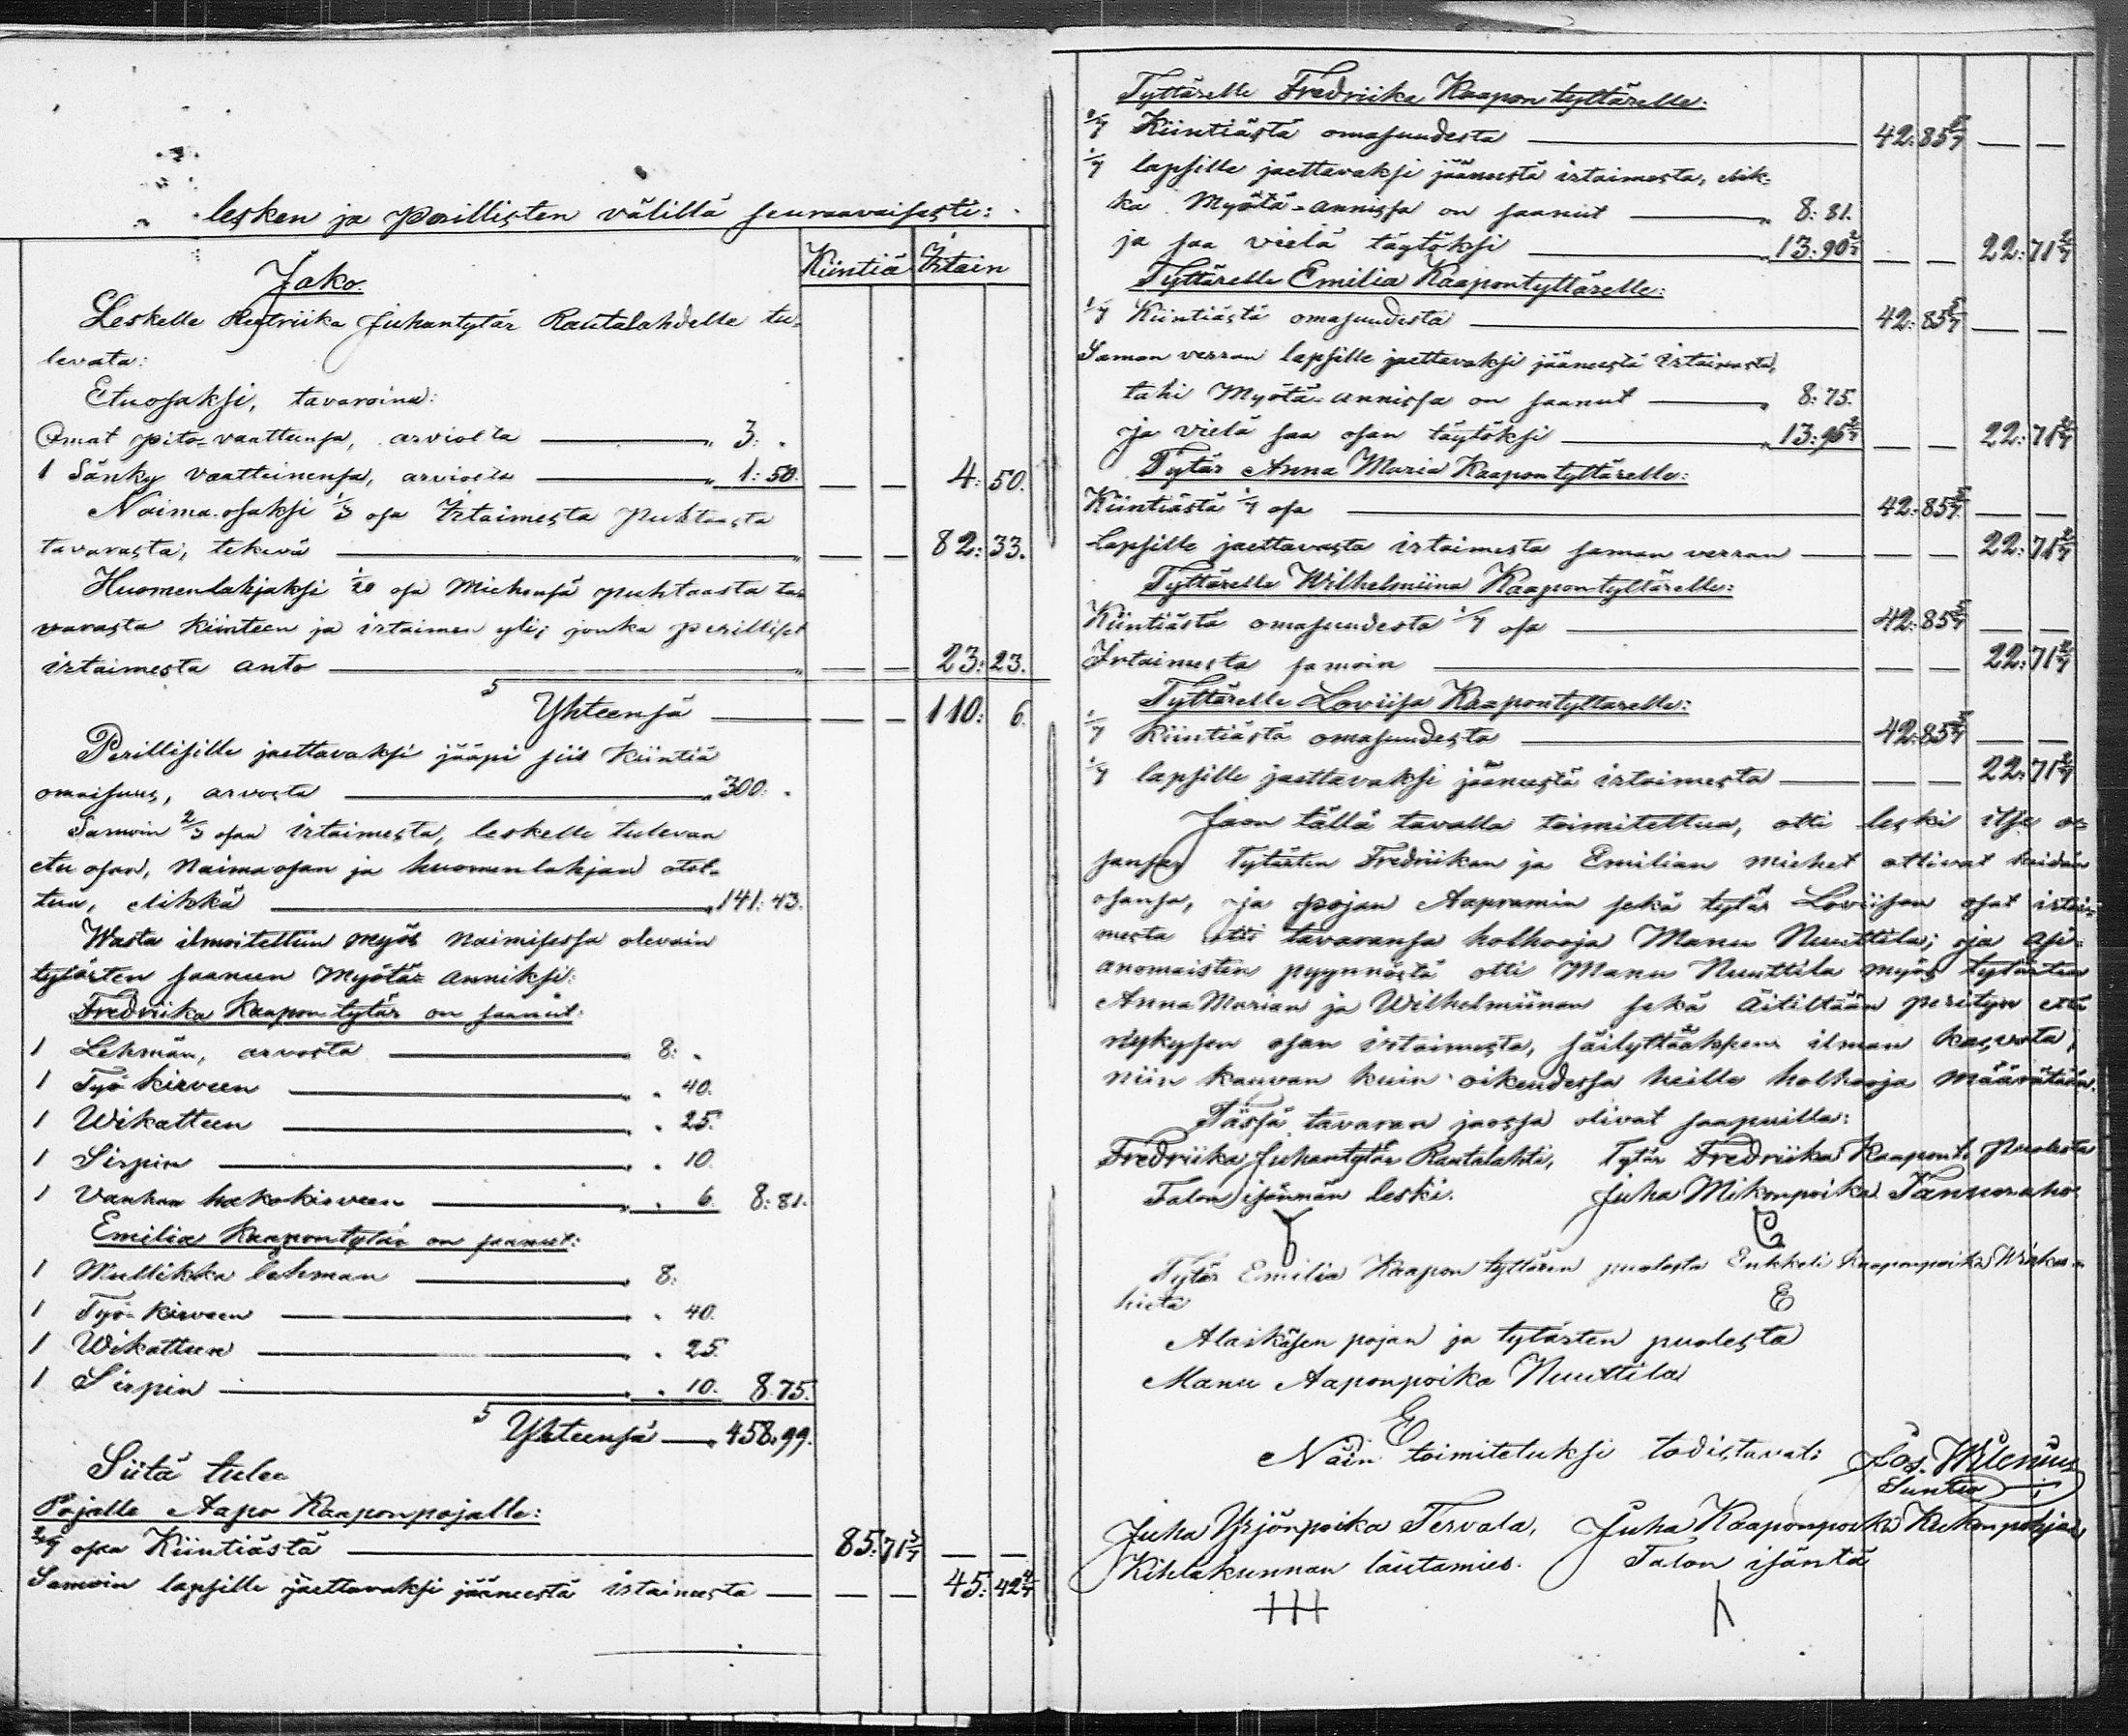 lesken ja Perillisten välillä seuraavaisesti:
Jako. Kiintiä Irtain
Leskelle Reetriika Juhantytär Rautalahdelle tu-
levata:
Etuosaksi, tavaroina:
Omat pito-vaattensa, arviolta „ 3: „
1 Sänky vaatteinensa, arviolta „ 1: 50. — — 4: 50.
Naima-osaksi 1/3 osa Irtaimesta puhtaasta
tavarasta, tekevä „ — — 82: 33.
Huomenlahjaksi 1/20 osa Miehensä puhtaasta ta-
varasta kiinteen ja irtaimen yli; jonka perilliset
irtaimesta anto „ — — 23: 23.
Yhteensä — — 110: 6.
Perillisille jaettavaksi jääpi siis Kiintiä
omaisuus, arvosta „ 300: „
Samoin 2/3 osaa irtaimesta, leskelle tulevan
etu osan, Naima osan ja huomenlahjan otet-
tua, elikkä „ 141: 43.
Wasta ilmoitettiin myös Naimisessa olevain
tytärten saaneen Myötä-anniksi:
Fredriika Kaapontytär on saanut:
1 Lehmän, arvosta 8: „
1 Työ kirveen „ „ 40.
1 Wikatteen „ „ 25.
1 Sirpin „ „ 10.
1 Vanhan hakokirveen „ „ 6. 8: 81.
Emilia Kaapontytär on saanut:
1 Mullikka lehmän „ 8:
1 Työ-kirveen „ 40.
1 Wikatteen „ „ 25.
1 Sirpin „ „ 10. 8.75.
Yhteensä „ 458: 99.
Siitä tulee
Pojalle Aapo Kaaponpojalle:
2/7 osaa Kiintiästä 85: 71 3/7 — —
Samoin lapsille jaettavaksi jääneestä irtaimesta — — 45: 42 4/7
Tyttärelle Fredriika Kaapon tyttärelle:
1/7 Kiintiästä omasuudesta 42: 85 5/7 — —
1/7 lapsille jaettavaksi jääneestä irtaimesta, elik-
kä Myötä-annissa on saanut „ 8: 81.
ja saa vielä täytöksi „ 13: 90 2/7 — — 22: 71 2/7
Tyttärelle Emilia Kaapontyttärelle:
1/7 Kiintiästä omasuudesta 42: 85 5/7 — —
Saman verran lapsille jaettavaksi jääneestä irtaimesta,
tahi Myötä-annissa on saanut „ 8: 75.
ja vielä saa osan täytöksi „ 13: 96 2/7 — — 22: 71 2/7
Tytär Anna Maria Kaapontyttärelle:
Kiintiästä 1/7 osa 42: 85 5/7 — —
Lapsille jaettavasta irtaimesta saman verran — — 22: 71 2/7
Tyttärelle Wilhelmiina Kaapontyttärelle:
Kiintiästä omasuudesta 1/7 osa 42: 85 5/7 — —
Irtaimesta samoin — — 22: 71 2/7
Tyttärelle Loviisa Kaapontyttarelle:
1/7 Kiintiästä omasuudesta 42: 85 5/7 — —
1/7 lapsille jaettavaksi jääneestä irtaimesta — — 22: 71 2/7
Jaon tällä tavalla toimitettua, otti leski itse o-
sansa, tytärten Fredriikan ja Emilian miehet ottivat heidän
osansa, ja pojan Aapramin sekä tytär Loviisan osat irtai-
mesta otti tavaransa holhooja Manu Nuuttila; ja asi-
anomaisten pyynnöstä otti Manu Nuuttila myös tytärten
Anna Marian ja Wilhelmiinan sekä äitiltään perityn että
nykysen osan irtaimesta, säilyttääksen ilman kasvota,
niin kauvan kuin oikeudessa heille holhooja määrätään.
Tässä tavaran jaossa olivat saapuilla:
Fredriika Juhantytär Rautalahti, Tytär Fredriika Kaapont. puolesta
Talon isännän leski. Juha Mikonpoika Tannoraho
Tytär Emilia Kaapon tyttären puolesta Enkkeli Kaaponpoika
hieta E
Alaikäsen pojan ja tytärten puolesta
Manu Aaponpoika Nuuttila
E
Näin toimitetuksi todistavat: Jos. Wilenius
Suntio
Juha Yrjönpoika Tervala, Juha Kaaponpoika Kukonpohja
Kihlakunnan lautamies. Talon isäntä